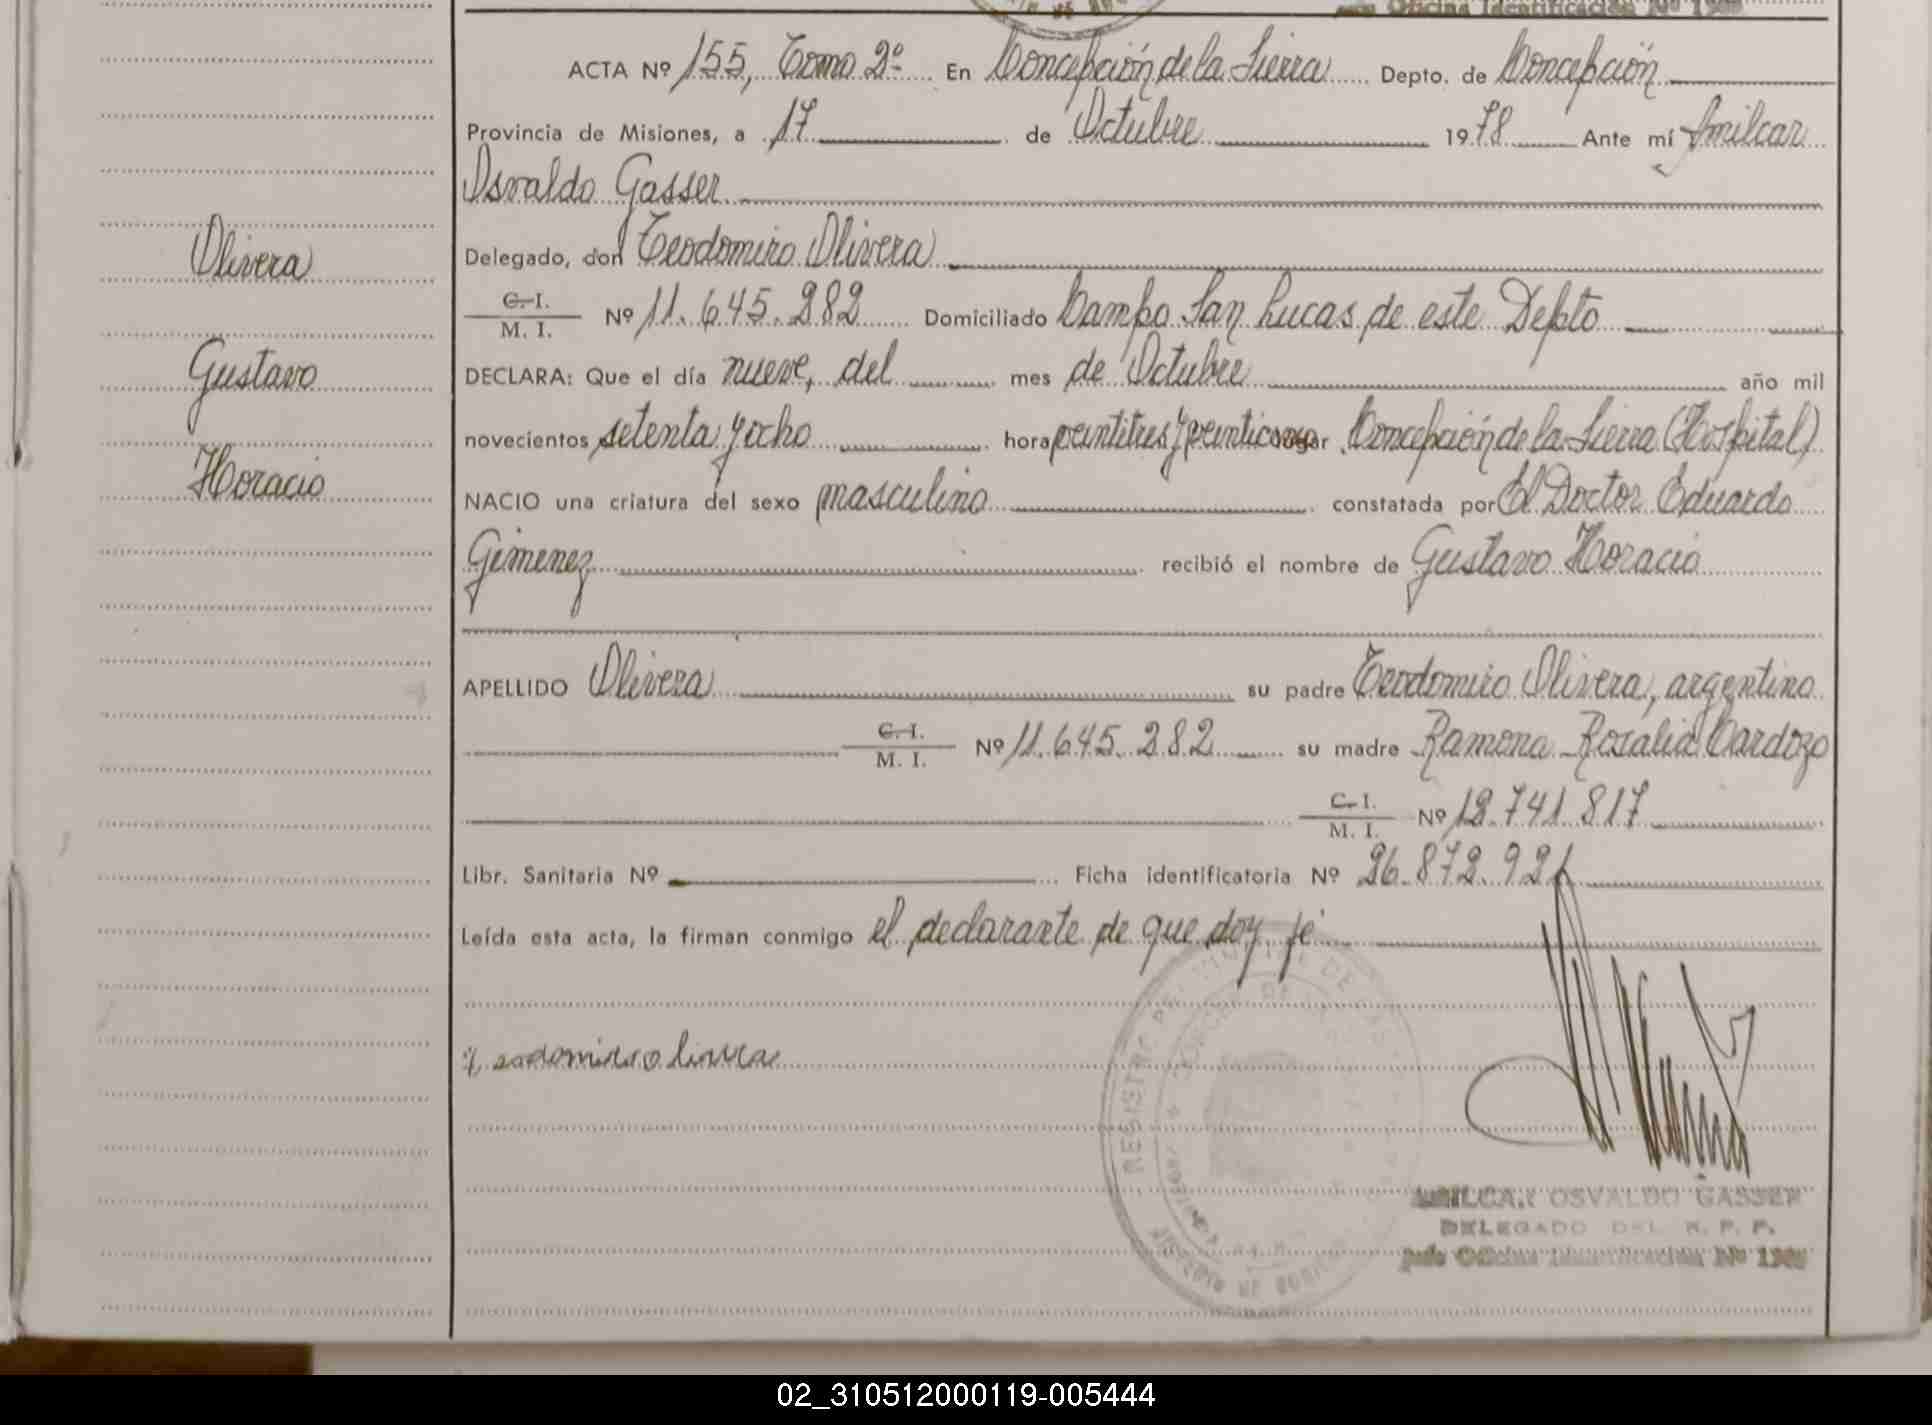 Oficina Identificación Nº
ACTA Nº 155, Tomo 2º En Concepción de la Sierra Depto. de Concepción
Provincia de Misiones, a 17 de Octubre 1978 Ante mí Amilcar
Osvaldo Gasser
Delegado, don Teodomiro Olivera
C. I. / M. I. Nº 11.645.282 Domiciliado Campo San Lucas de este Depto
DECLARA: Que el día nueve, del mes de Octubre año mil
novecientos setenta y ocho hora veintitres y veinticinco lugar Concepción de la Sierra (Hospital)
NACIO una criatura del sexo masculino constatada por El Doctor Eduardo
Gimenez recibió el nombre de Gustavo Horacio
APELLIDO Olivera su padre Teodomiro Olivera, argentino
C. I. / M. I. Nº 11.645.282 su madre Ramona Rosalia Cardozo
C. I. / M. I. Nº 12.741.817
Libr. Sanitaria Nº Ficha identificatoria Nº 26.872.921
Leída esta acta, la firman conmigo el declarante de que doy fé
Olivera
Gustavo
Horacio
REGISTRO PROVINCIAL DE LAS
OSVALDO GASSER
DELEGADO DEL R. P. P.
Oficina Identificación Nº
02_310512000119-005444